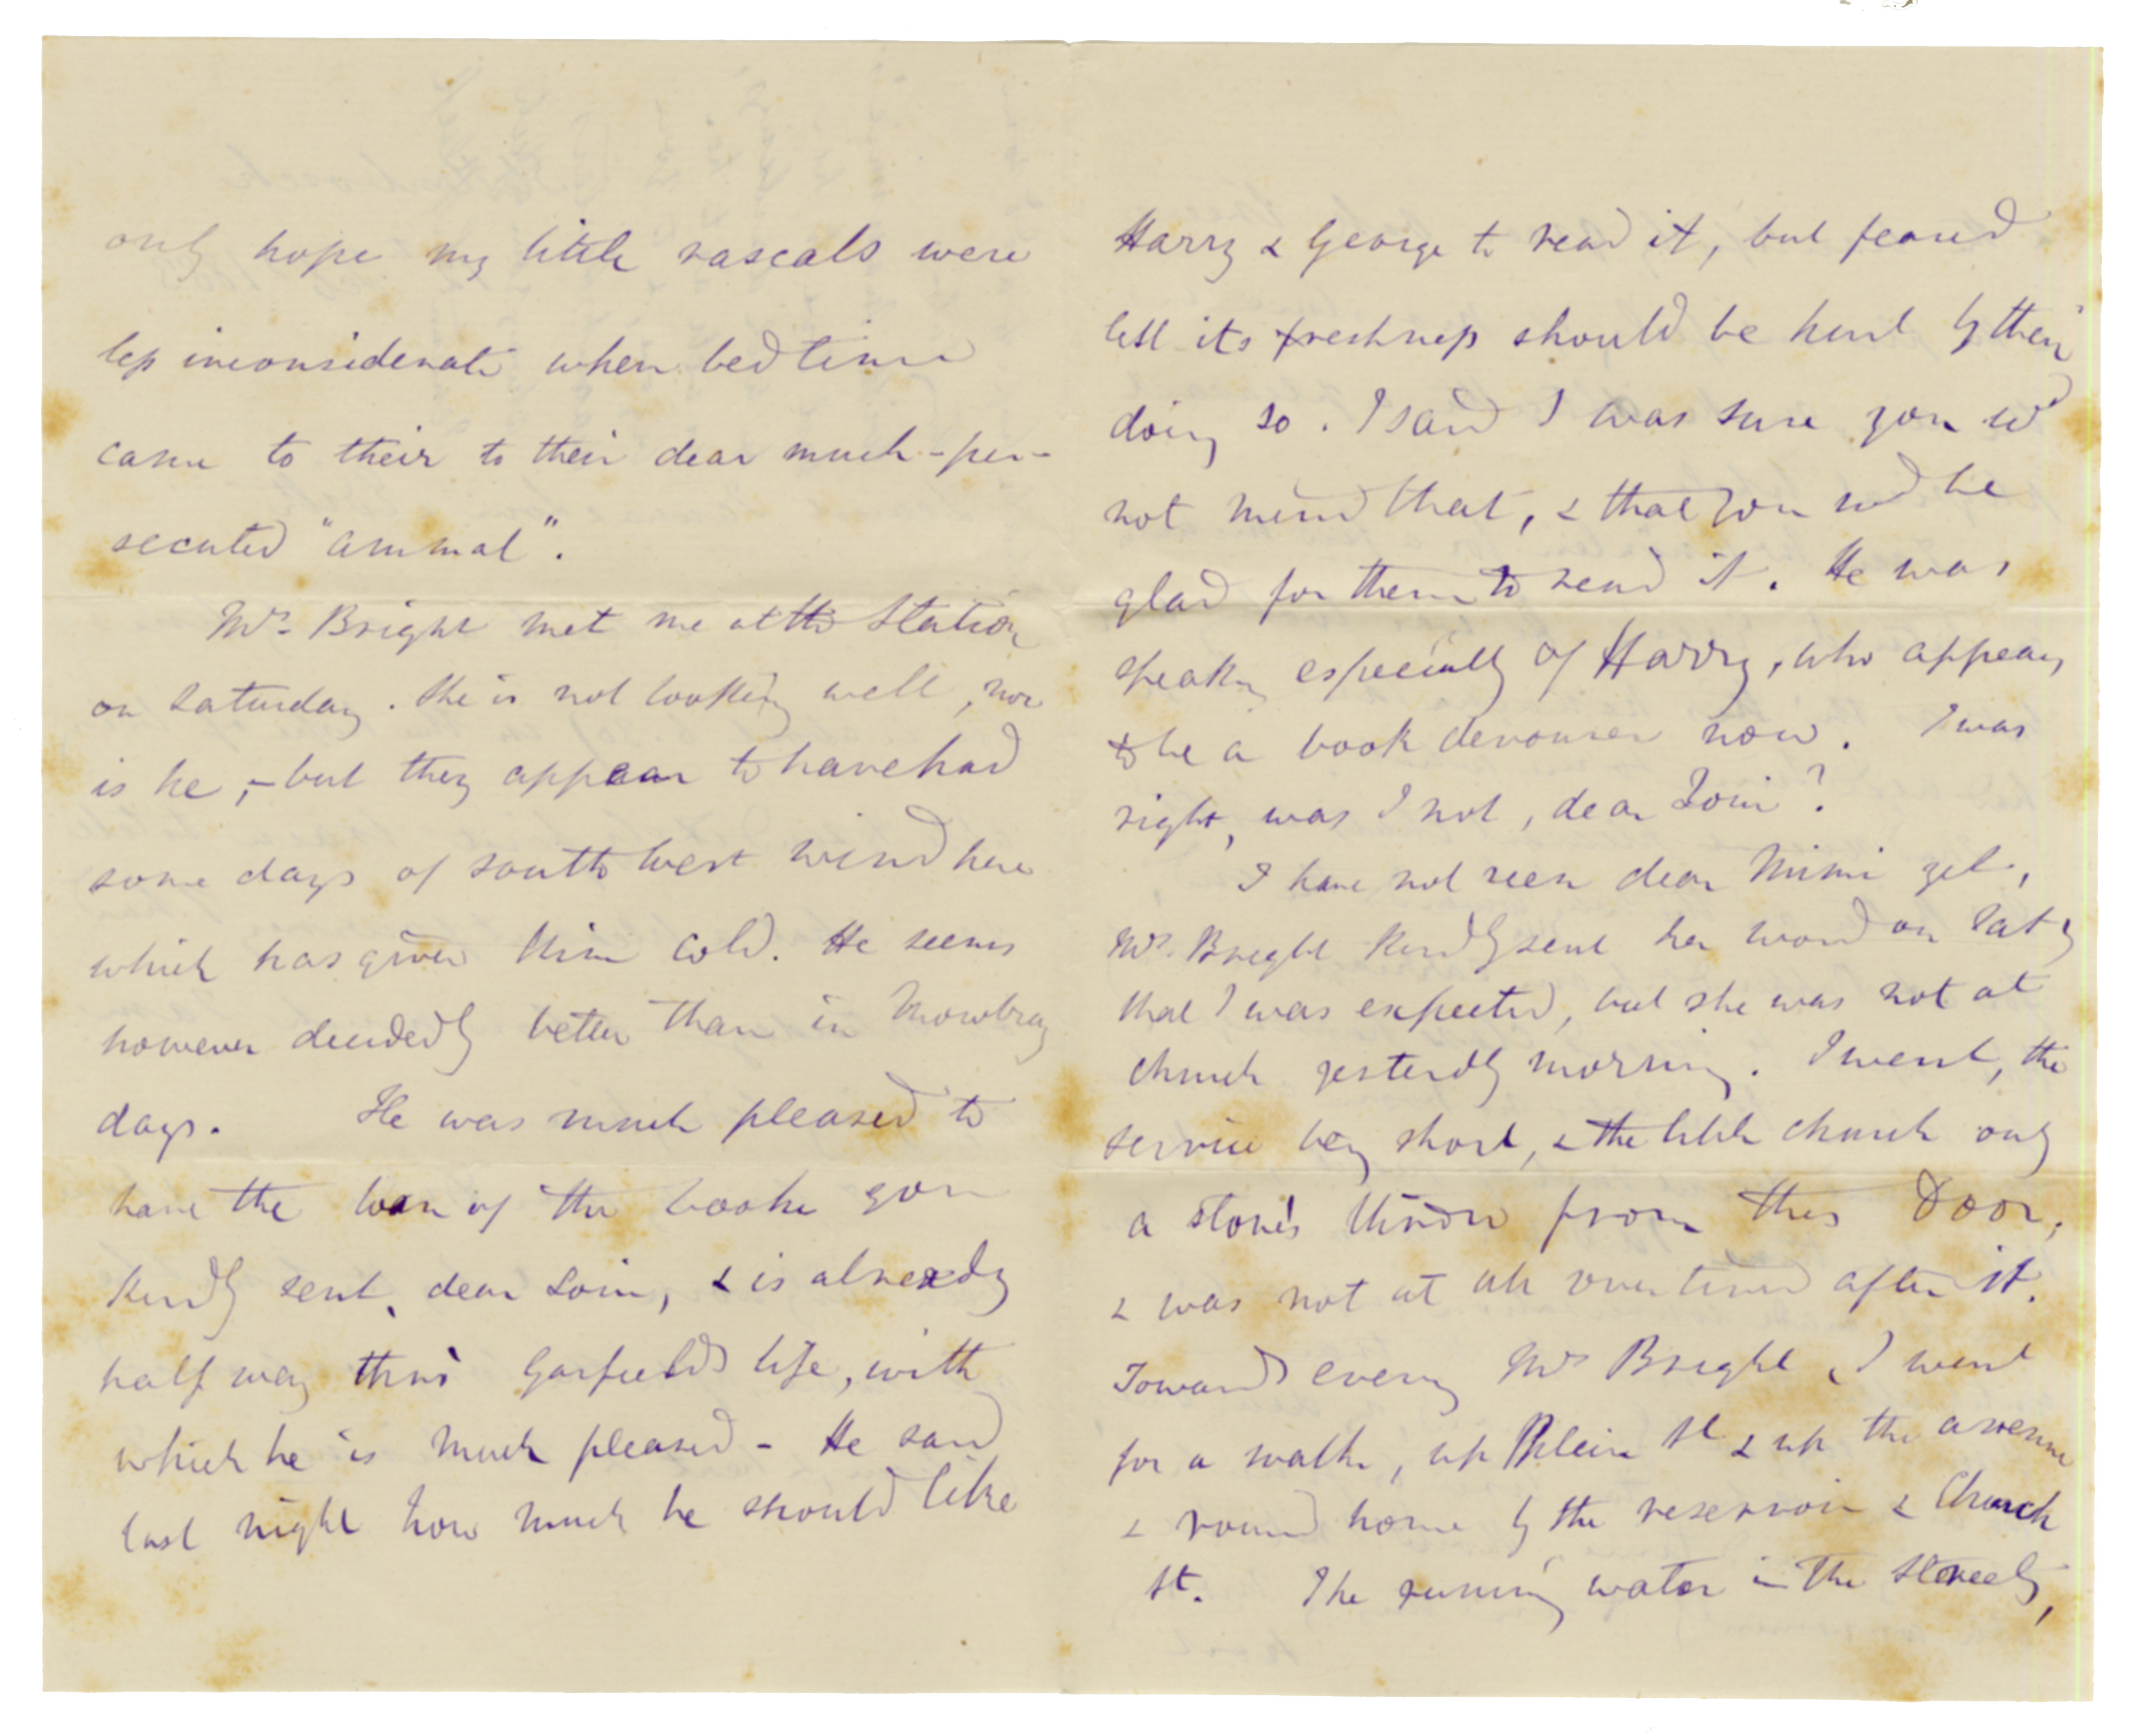 only hope my little rascals were
less inconsiderate when bedtime
came to their to their dear much-per-
secuted "animal".
Mrs. Bright met me at the Station
on Saturday. She is not looking well, nor
is he, – but they appear to have had
some days of south west wind here
which has given him cold. He seems
however decidedly better than in Mowbray
days. He was much pleased to
have the loan of the books you
kindly sent, dear Loui, & is already
half way thro' Garfield's life, with
which he is much pleased – He said
last night how much he should like
Harry & George to read it, but feared
lest its freshness should be hurt by their
doing so. I said I was sure you wd
not mind that, & that you wd be
glad for them to read it. He was
speakg especially of Harry, who appears
to be a book devourer now. I was
right, was I not, dear Loui?
I have not seen dear Mimi yet,
Mrs. Bright kindly sent her word on Saty
that I was expected, but she was not at
church yesterdy morning. I went, the
service beg short, & the little church only
a stone's throw from this door,
& was not at all overtired after it.
Towards eveng Mrs Bright & I went
for a walk, up Plein St & up the avenue
& round home by the reservoir & Church
St. The running water in the streets,